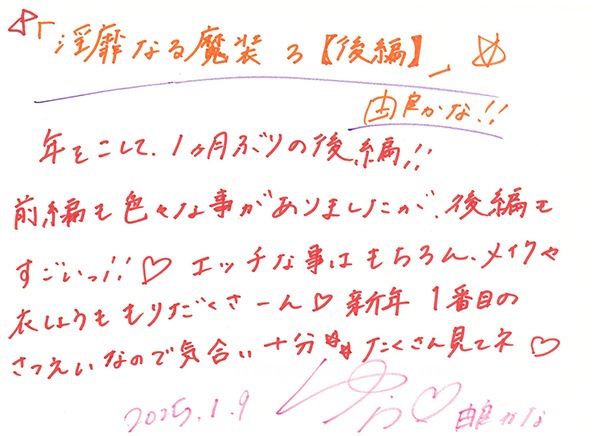 「淫靡なる魔装3【後編】」
由良かな!!
年をこして、1ヶ月ぶりの後編!!
前編も色々な事がありましたが、後編も
すごいっ!!♡ エッチな事はもちろん、メイクや
衣しょうももりだくさーん♡ 新年1番目の
さつえいなので気合い十分 たくさん見てネ♡
2025.1.9 ゆら♡ 由良かな